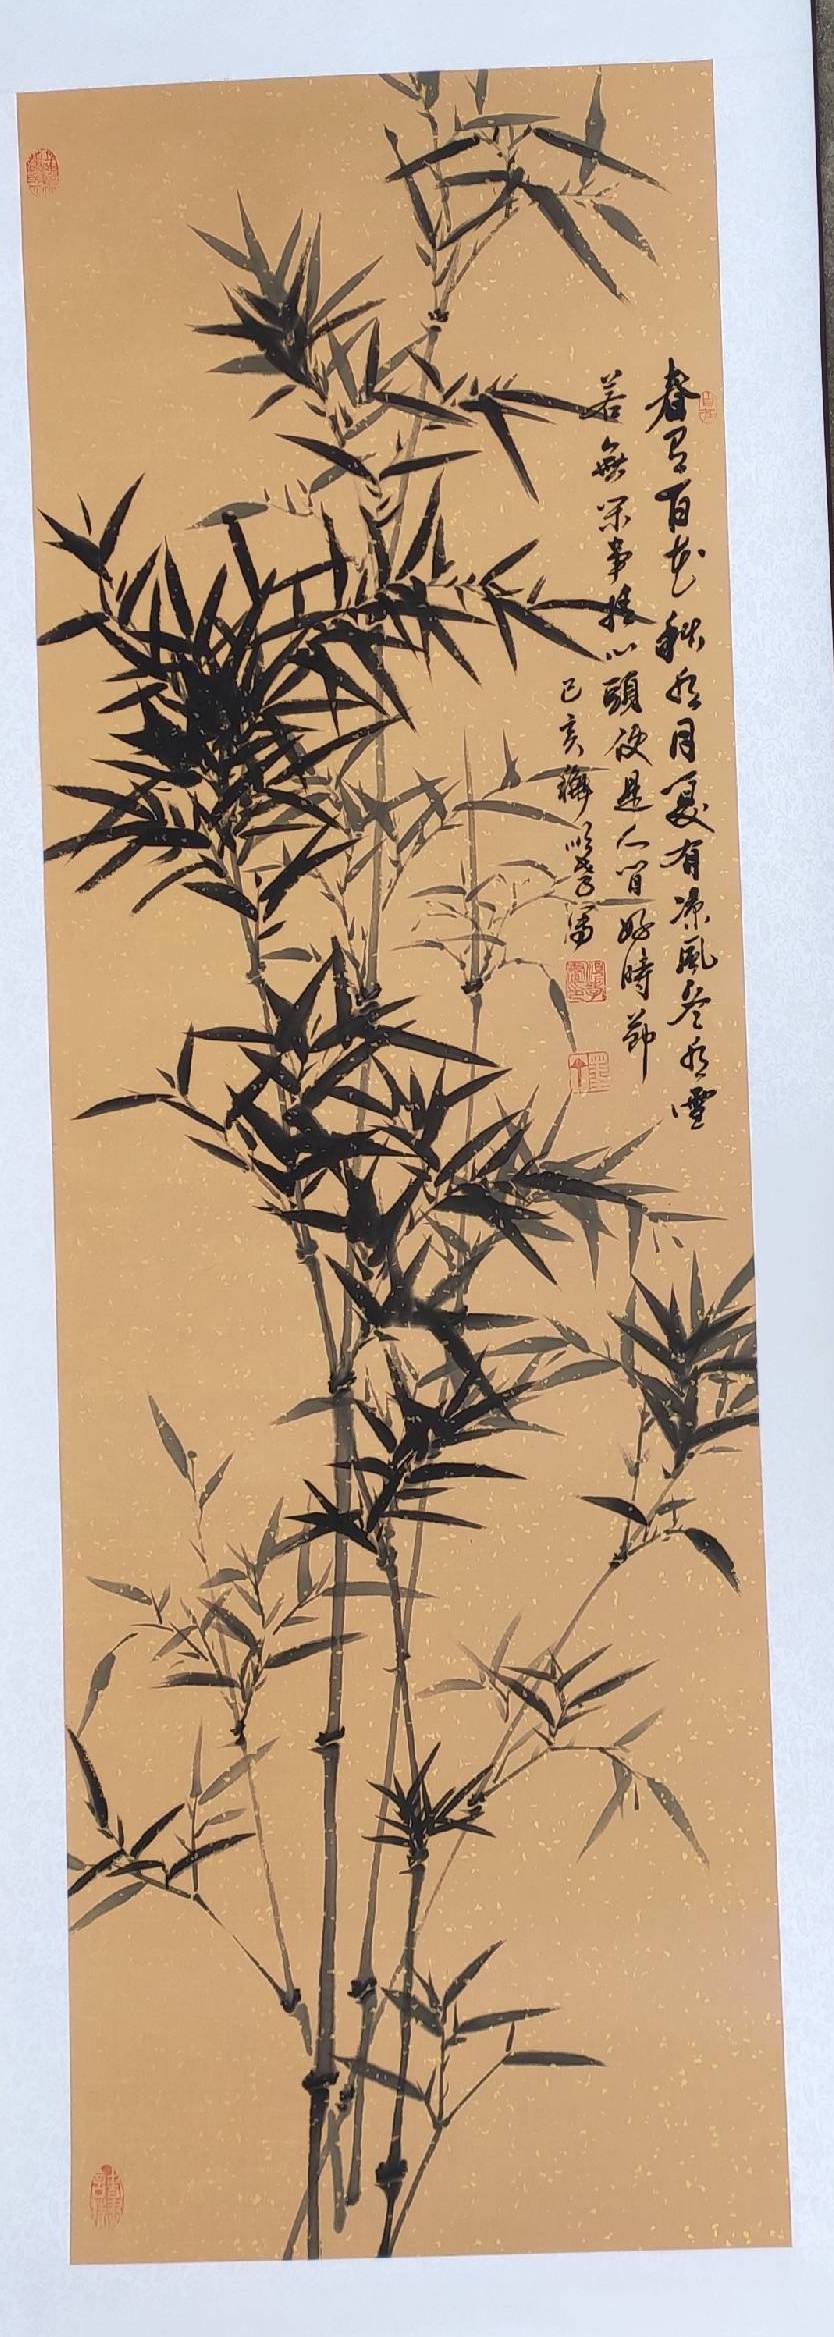 春有百花秋有月夏有凉風冬有雪
若無閑事挂心頭便是人间好時節
己亥